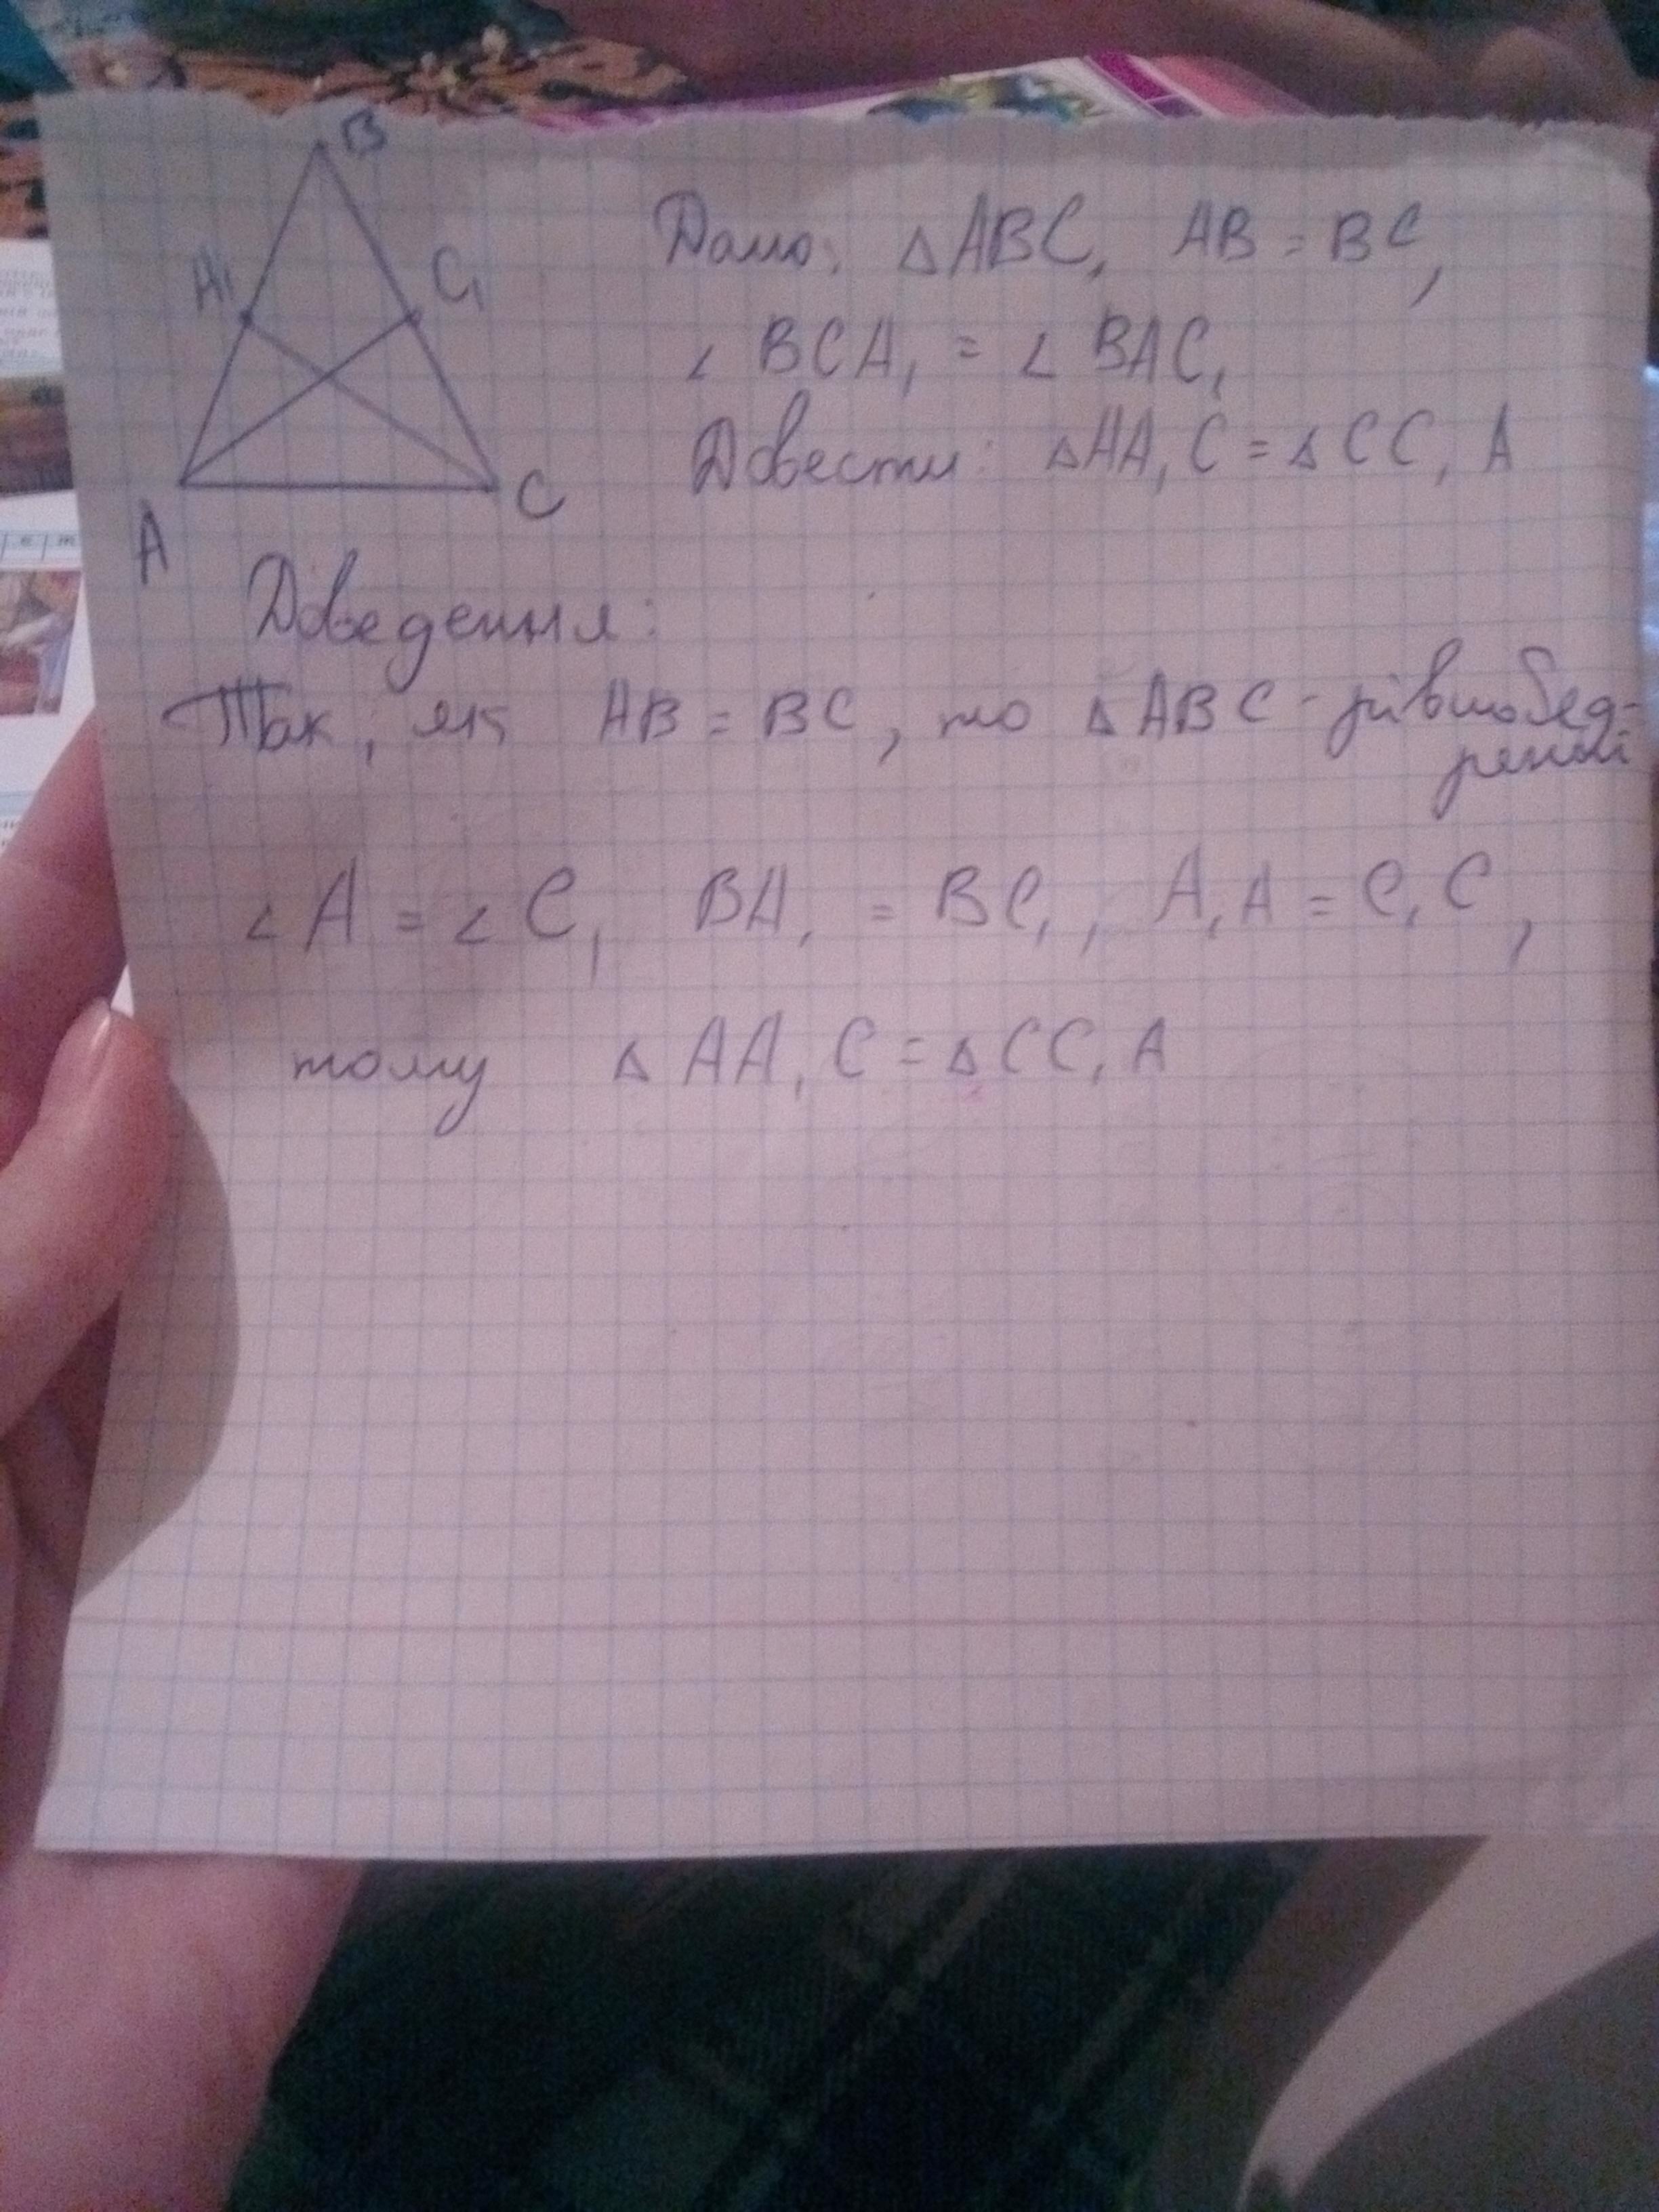 B
A₁ C₁
A C
Дано: △ABC, AB = BC,
∠ BCA₁ = ∠ BAC₁
Довести: △AA₁C = △CC₁A
Доведення:
Так, як AB = BC, то △ABC - рівнобед-
рений
∠A = ∠C, BA₁ = BC₁, A₁A = C₁C,
тому △AA₁C = △CC₁A